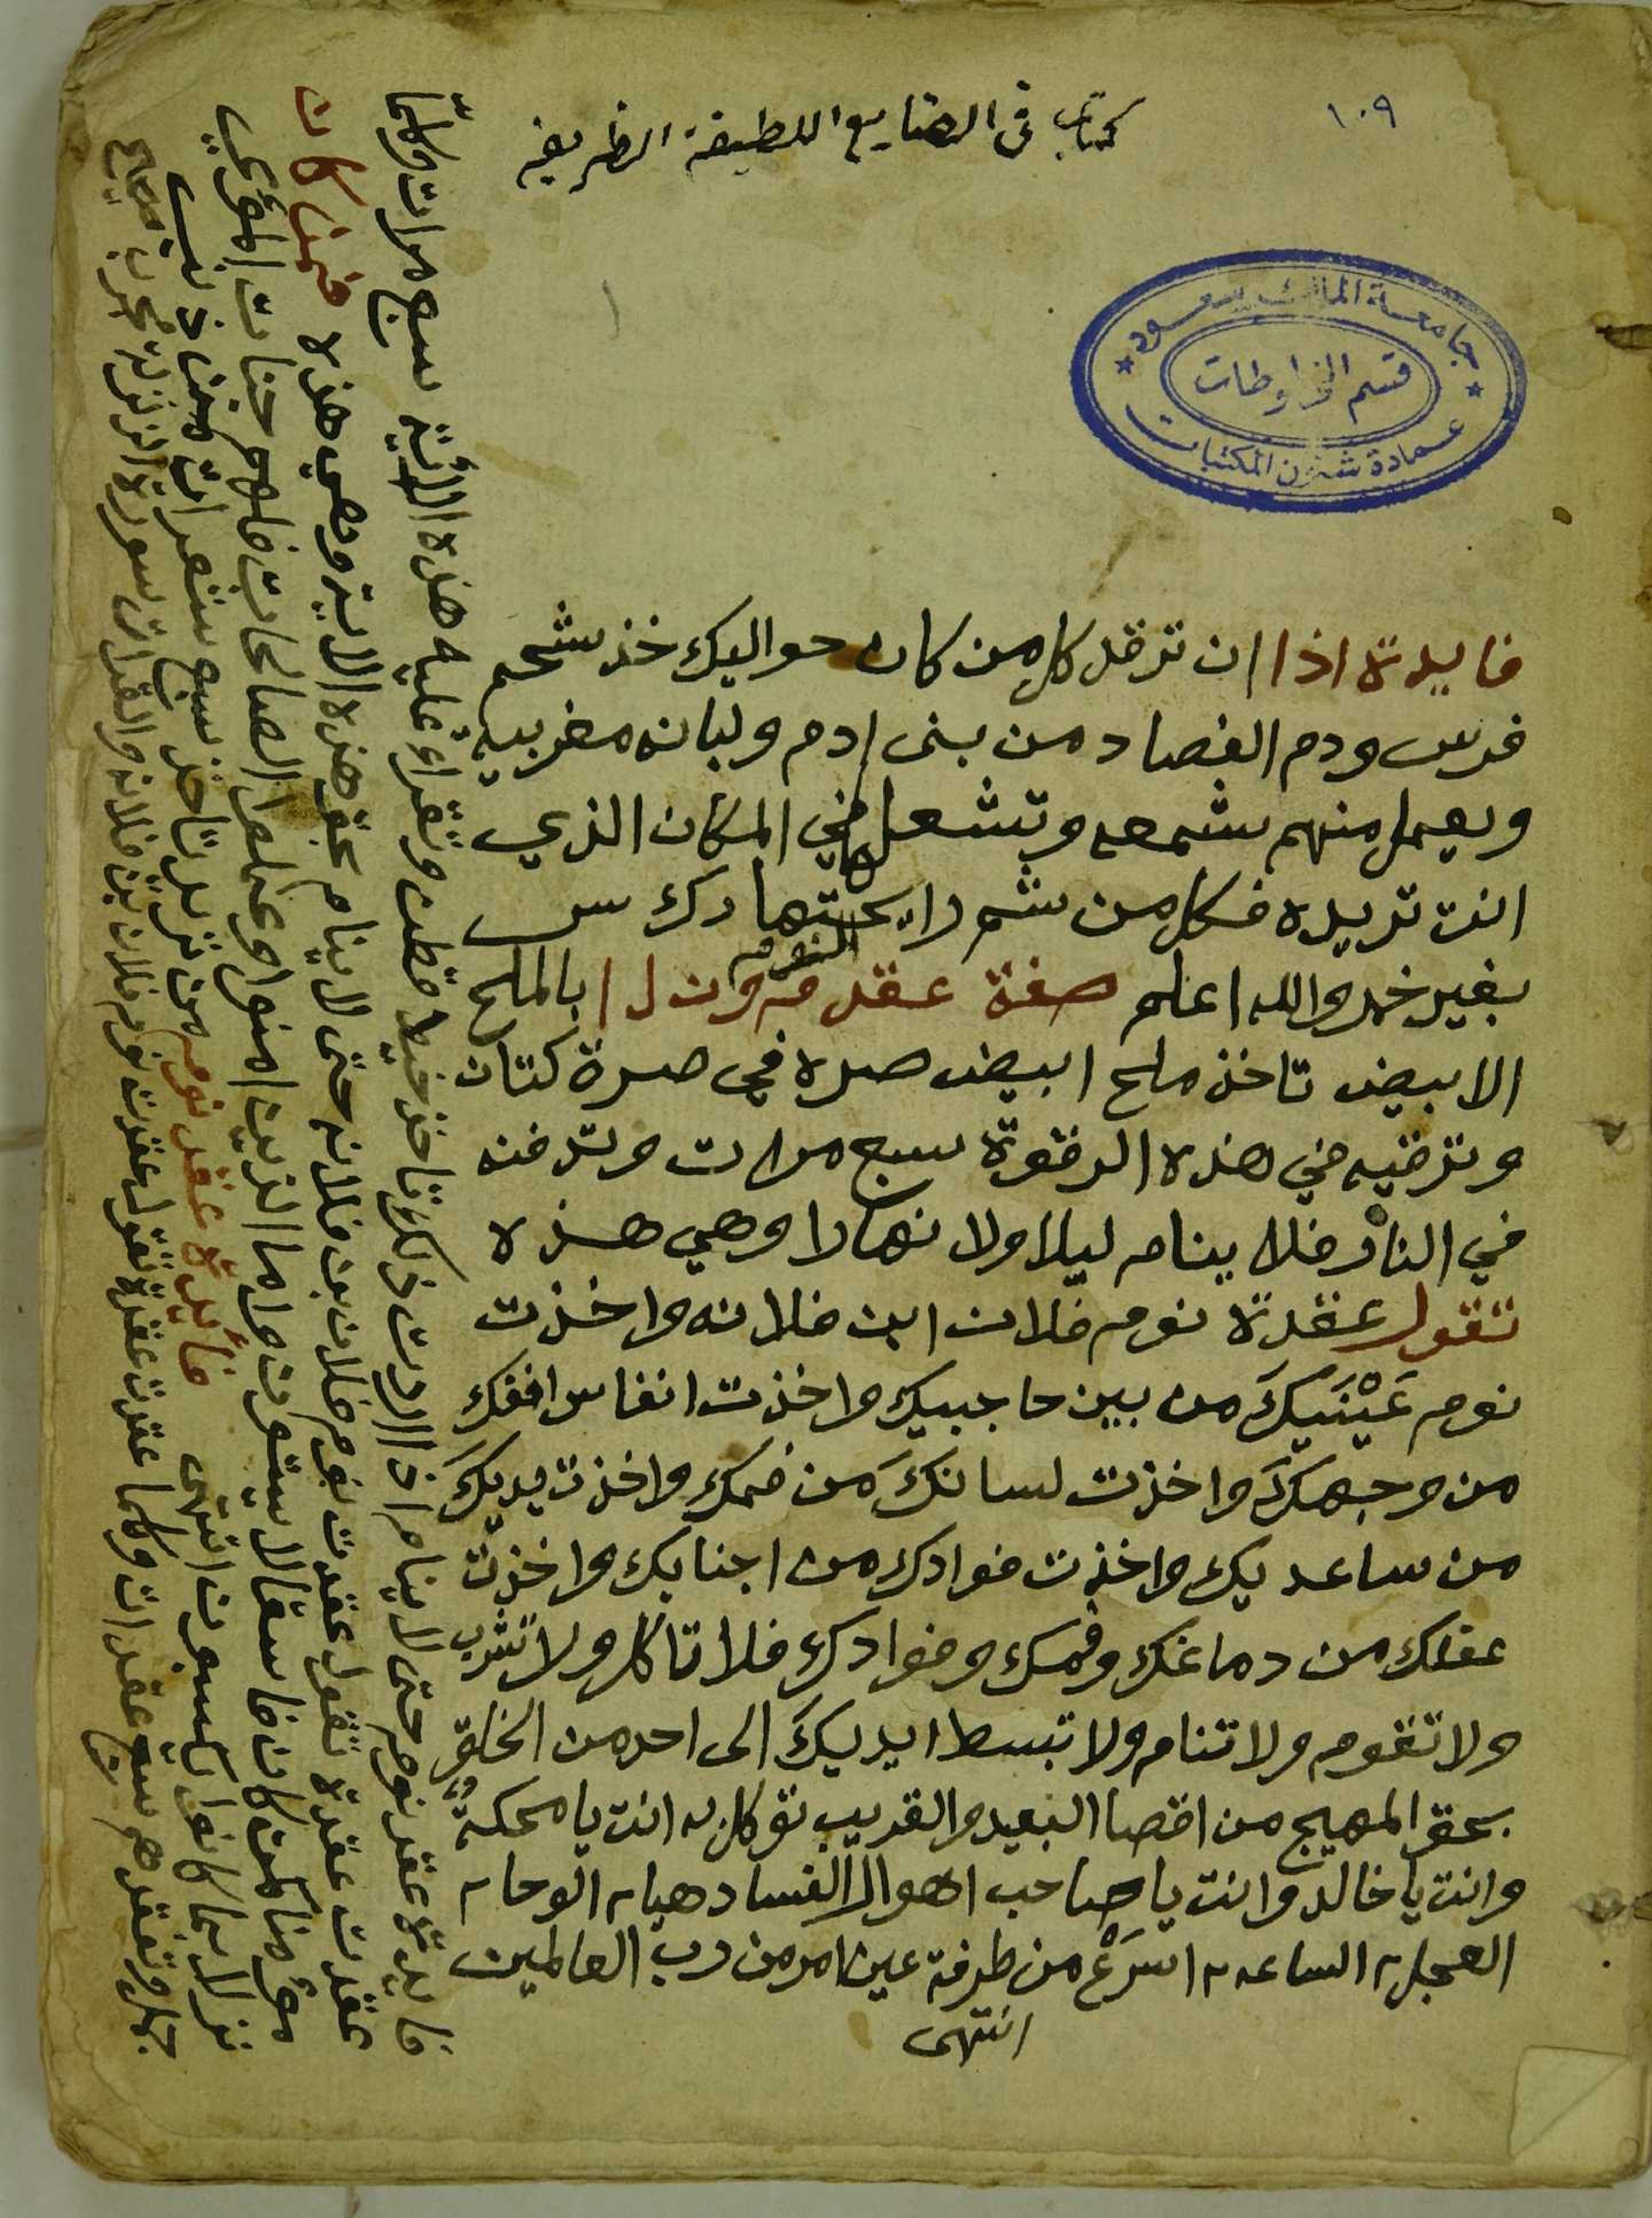 ١٠٩
كتاب فى الصنايع اللطيفة الظريفه
جامعة الملك سعود
قسم المخطوطات
عمادة شئون المكتبات
فايدة اذا ان ترقد كل من كان حواليك خذ شحم
فرس ودم الفصاد من بنى ادم ولبانه مغربيه
ويعمل منهم شمعه وتشعلها في المكان الذي
انت تريده فكل من شم رايحتها ركس
بغير خمر والله اعلم صفة عقد النوم بالملح
الابيض تاخذ ملح ابيض صره في صرة كتان
وترقيه في هذه الرقوة سبع مرات وتدفنه
في النار فلا ينام ليلا ولا نهارا وهي هذه
تقول عقدة نوم فلان ابن فلانه واخذت
نوم عَيْنَيكَ من بين حاجبيك واخذت انفاس افقك
من وجهكَ واخذت لسانكَ من فمك واخذت يديكَ
من ساعديك واخذت فوادك من اجنابك واخذت
عقلك من دماغك وفمك وفوادك فلا تاكل ولا تشرب
ولا تقوم ولا تنام ولا تبسط ايديكَ الى احد من الخلق
بحق المهيج من اقصا البعيد والقريب توكل انت يا محكمة
وانت يا خالد وانت يا صاحب اهوال الفساد هيا الوحا
العجل الساعه اسرَعْ من طرفة عين امر من رب العالمين
انتهى
فايدة عقد نوم حتى لا ينام اذا اردت ذلك تاخذ خيط قطن وتقراء عليه هذه الاية سبع مرات وكلما
عقدت عقدة تقول عقدت نوم فلان بن فلانه حتى لا ينام بحق هذه الاية وهي هذه فمن كان
مؤمنا كمن كان فاسقا لا يستون واما الذين امنوا وعملوا الصالحات فلهم جنات المأوي
نزلا بما كانوا يعملون انتهى فايدة عقد نومه من تريد تاخذ سبع شعرات من ذنب
وتعقدهم سبع عقدات وكلما عقدت عقدة تقول عقدت نوم فلان بن فلانه والقدات سورة الزلزلة